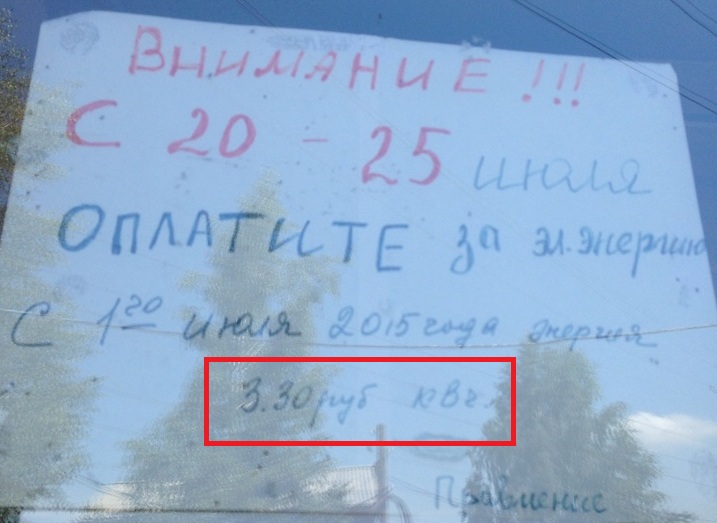 ВНИМАНИЕ !!!
С 20 - 25 июля
ОПЛАТИТЕ за эл.энергию
С 1го июля 2015 года энергия
3.30 руб кВч.
Правление